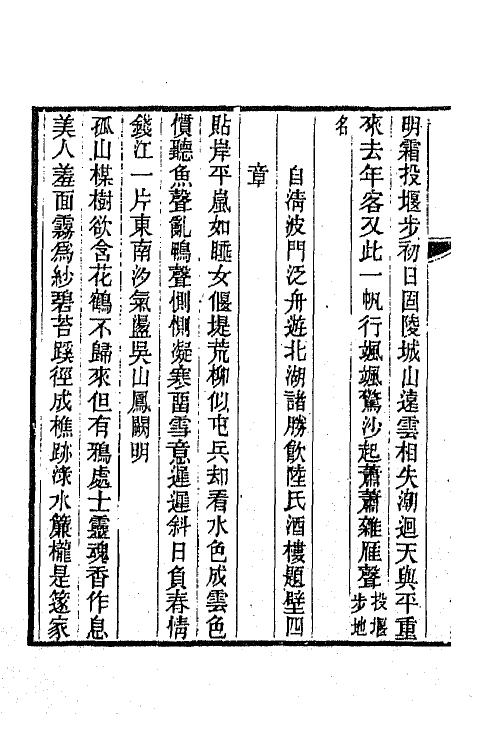 明霜投堰步初日固陵城山遠雲相失潮迴天與平重
來去年客又此一帆行颯颯驚沙起蕭蕭雜雁聲投堰步地
名
自清波門泛舟遊北湖諸勝飲陸氏酒樓題壁四
章
貼岸平嵐如睡女偃堤荒柳似屯兵却看水色成雲色
慣聽魚聲亂鴨聲惻惻凝寒畱雪意遲遲斜日負春情
錢江一片東南汐氣盪吳山鳳闕明
孤山楳樹欲含花鶴不歸來但有鴉處士靈魂香作息
美人羞面霧爲紗碧苔蹊徑成樵跡淥水簾櫳是篴家